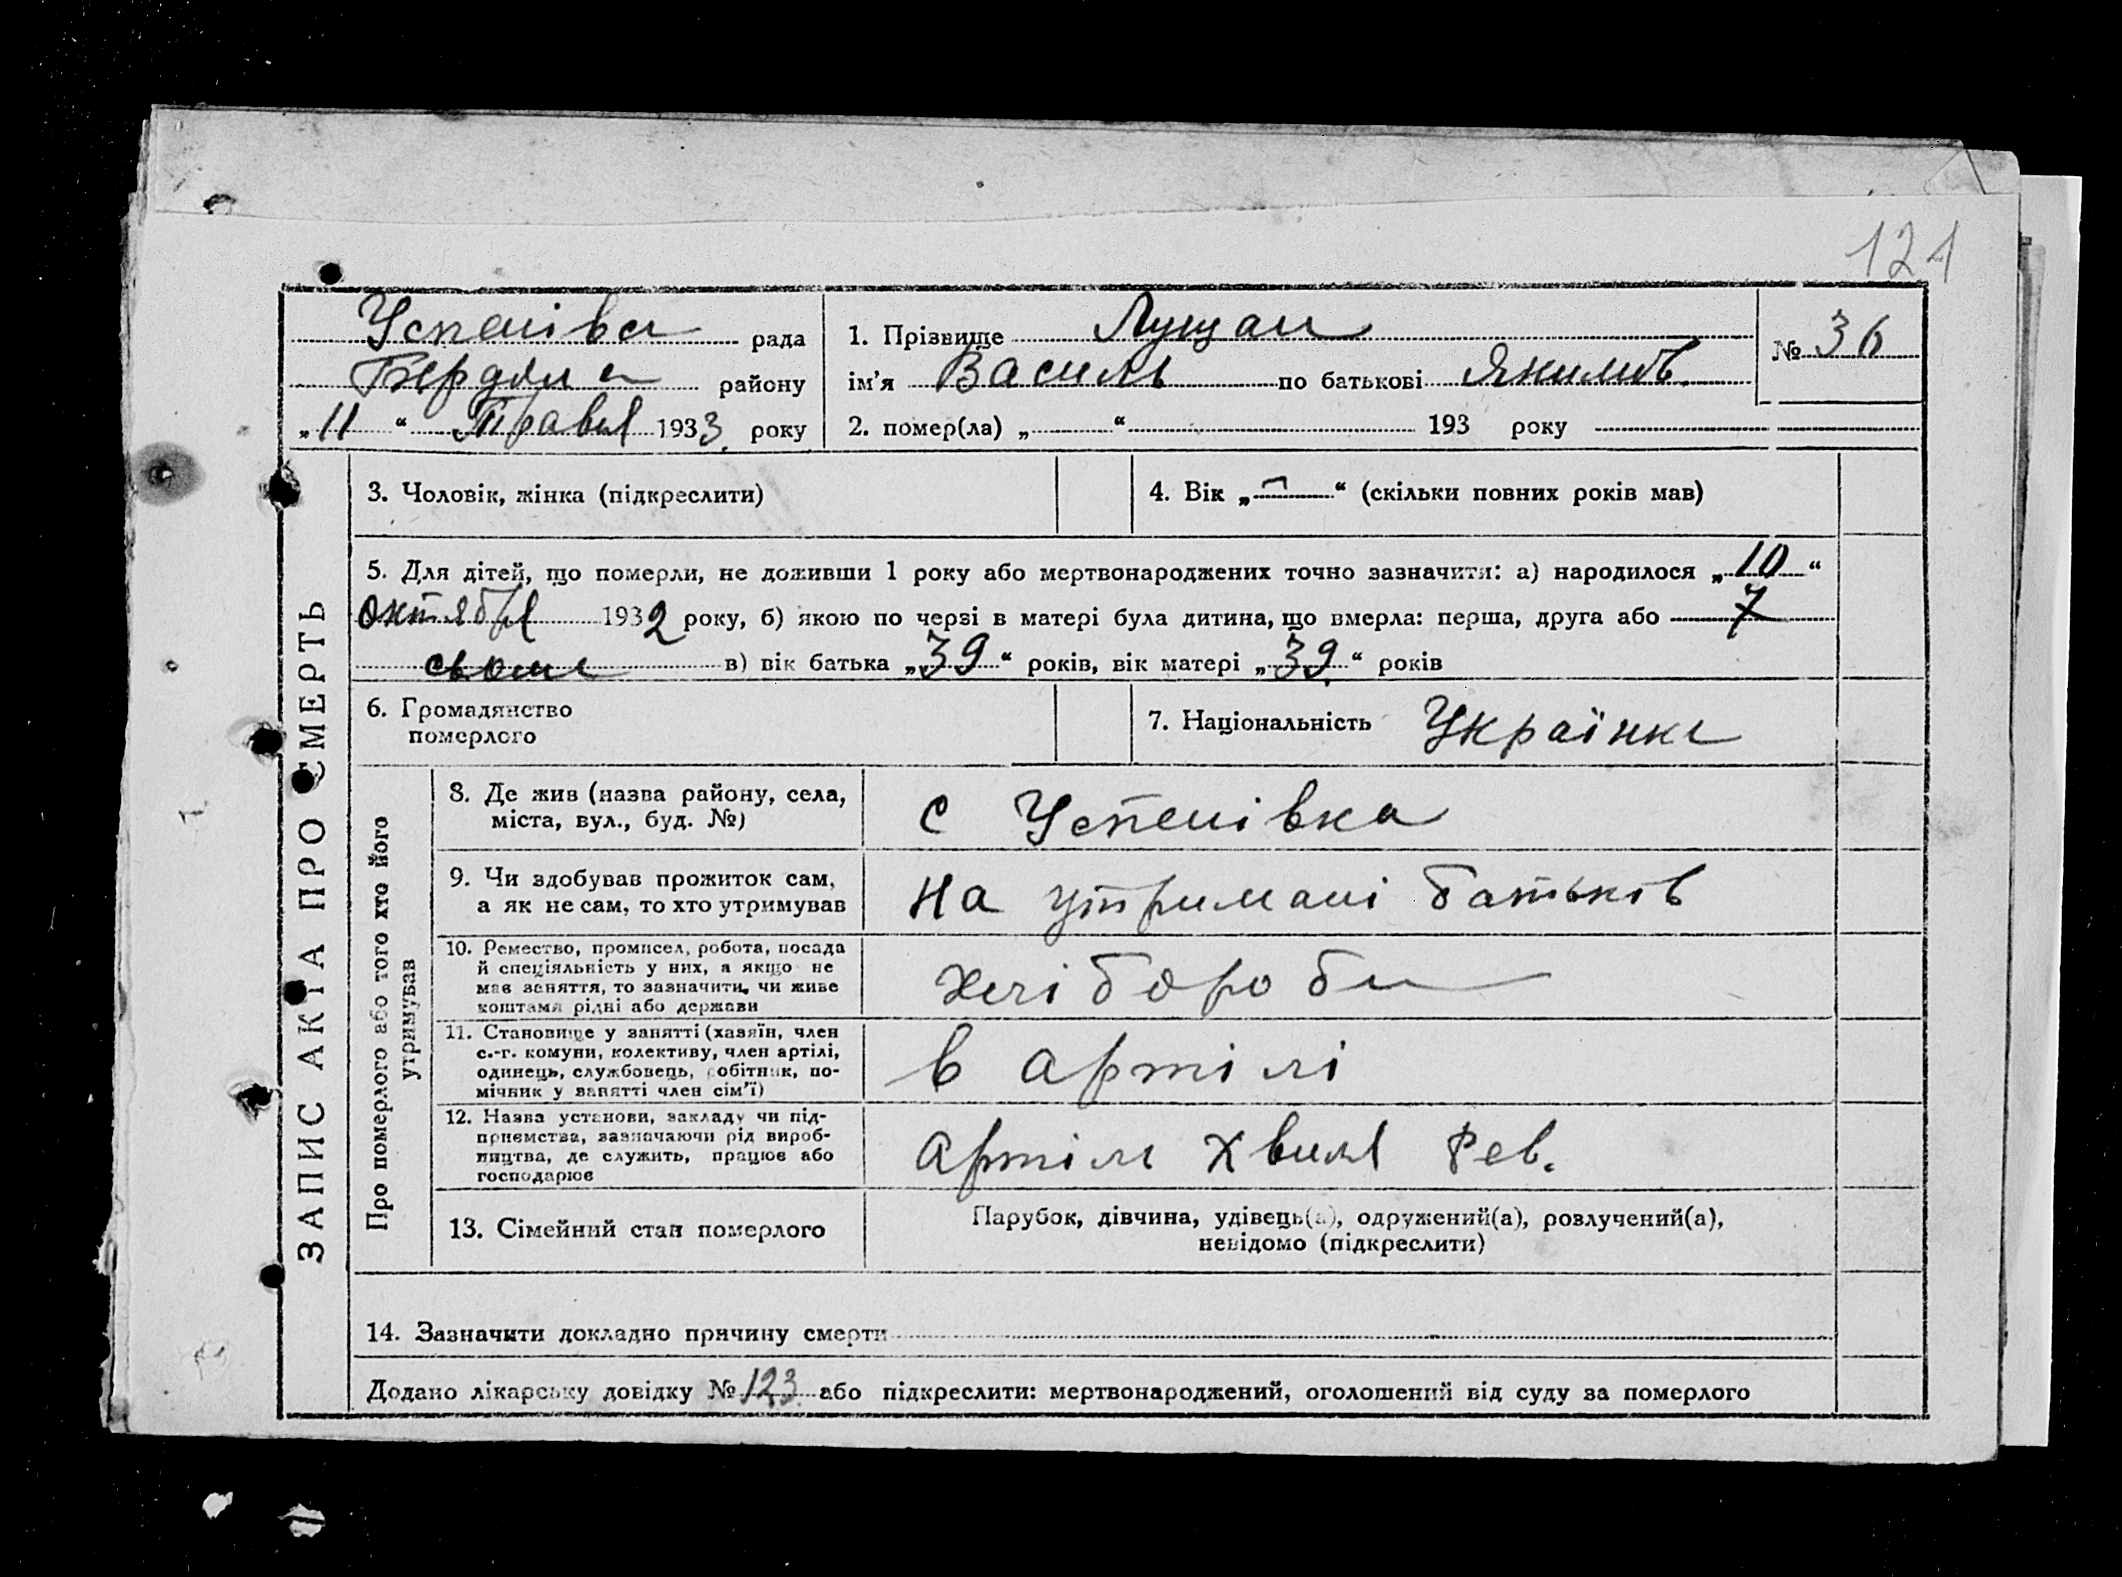 121
Успенівса рада
Бердян району
„11“ Травня 1933 року
1. Прізвище Лущан
№ 36
ім’я Василь по батькові Якимов.
2. помер(ла) „ “ 193 року
ЗАПИС АКТА ПРО СМЕРТЬ
3. Чоловік, жінка (підкреслити)
4. Вік „ “ (скільки повних років мав)
5. Для дітей, що померли, не доживши 1 року або мертвонароджених точно зазначити: а) народилося „10“
октября 1932 року, б) якою по черзі в матері була дитина, що вмерла: перша, друга або 7
сьоме в) вік батька „39“ років, вік матері „39“ років
6. Громадянство
померлого
7. Національність Українка
Про померлого або того хто його
утримував
8. Де жив (назва району, села,
міста, вул., буд. №)
с Успенівка
9. Чи здобував прожиток сам,
а як не сам, то хто утримував
на утримані батьків
10. Ремество, промисел, робота, посада
й спеціяльність у них, а якщо не
мав заняття, то зазначити, чи живе
коштами рідні або держави
хлібороби
11. Становище у занятті (хазяїн, член
с.-г. комуни, колективу, член артілі,
одинець, службовець, робітник, по-
мічник у занятті член сім’ї)
в артілі
12. Назва установи, закладу чи під-
приємства, зазначаючи рід вироб-
ництва, де служить, працює або
господарює
артіль Хвиля Рев.
13. Сімейний стан померлого
Парубок, дівчина, удівець(а), одружений(а), розлучений(а),
невідомо (підкреслити)
14. Зазначити докладно причину смерти
Додано лікарську довідку № 123 або підкреслити: мертвонароджений, оголошений від суду за померлого